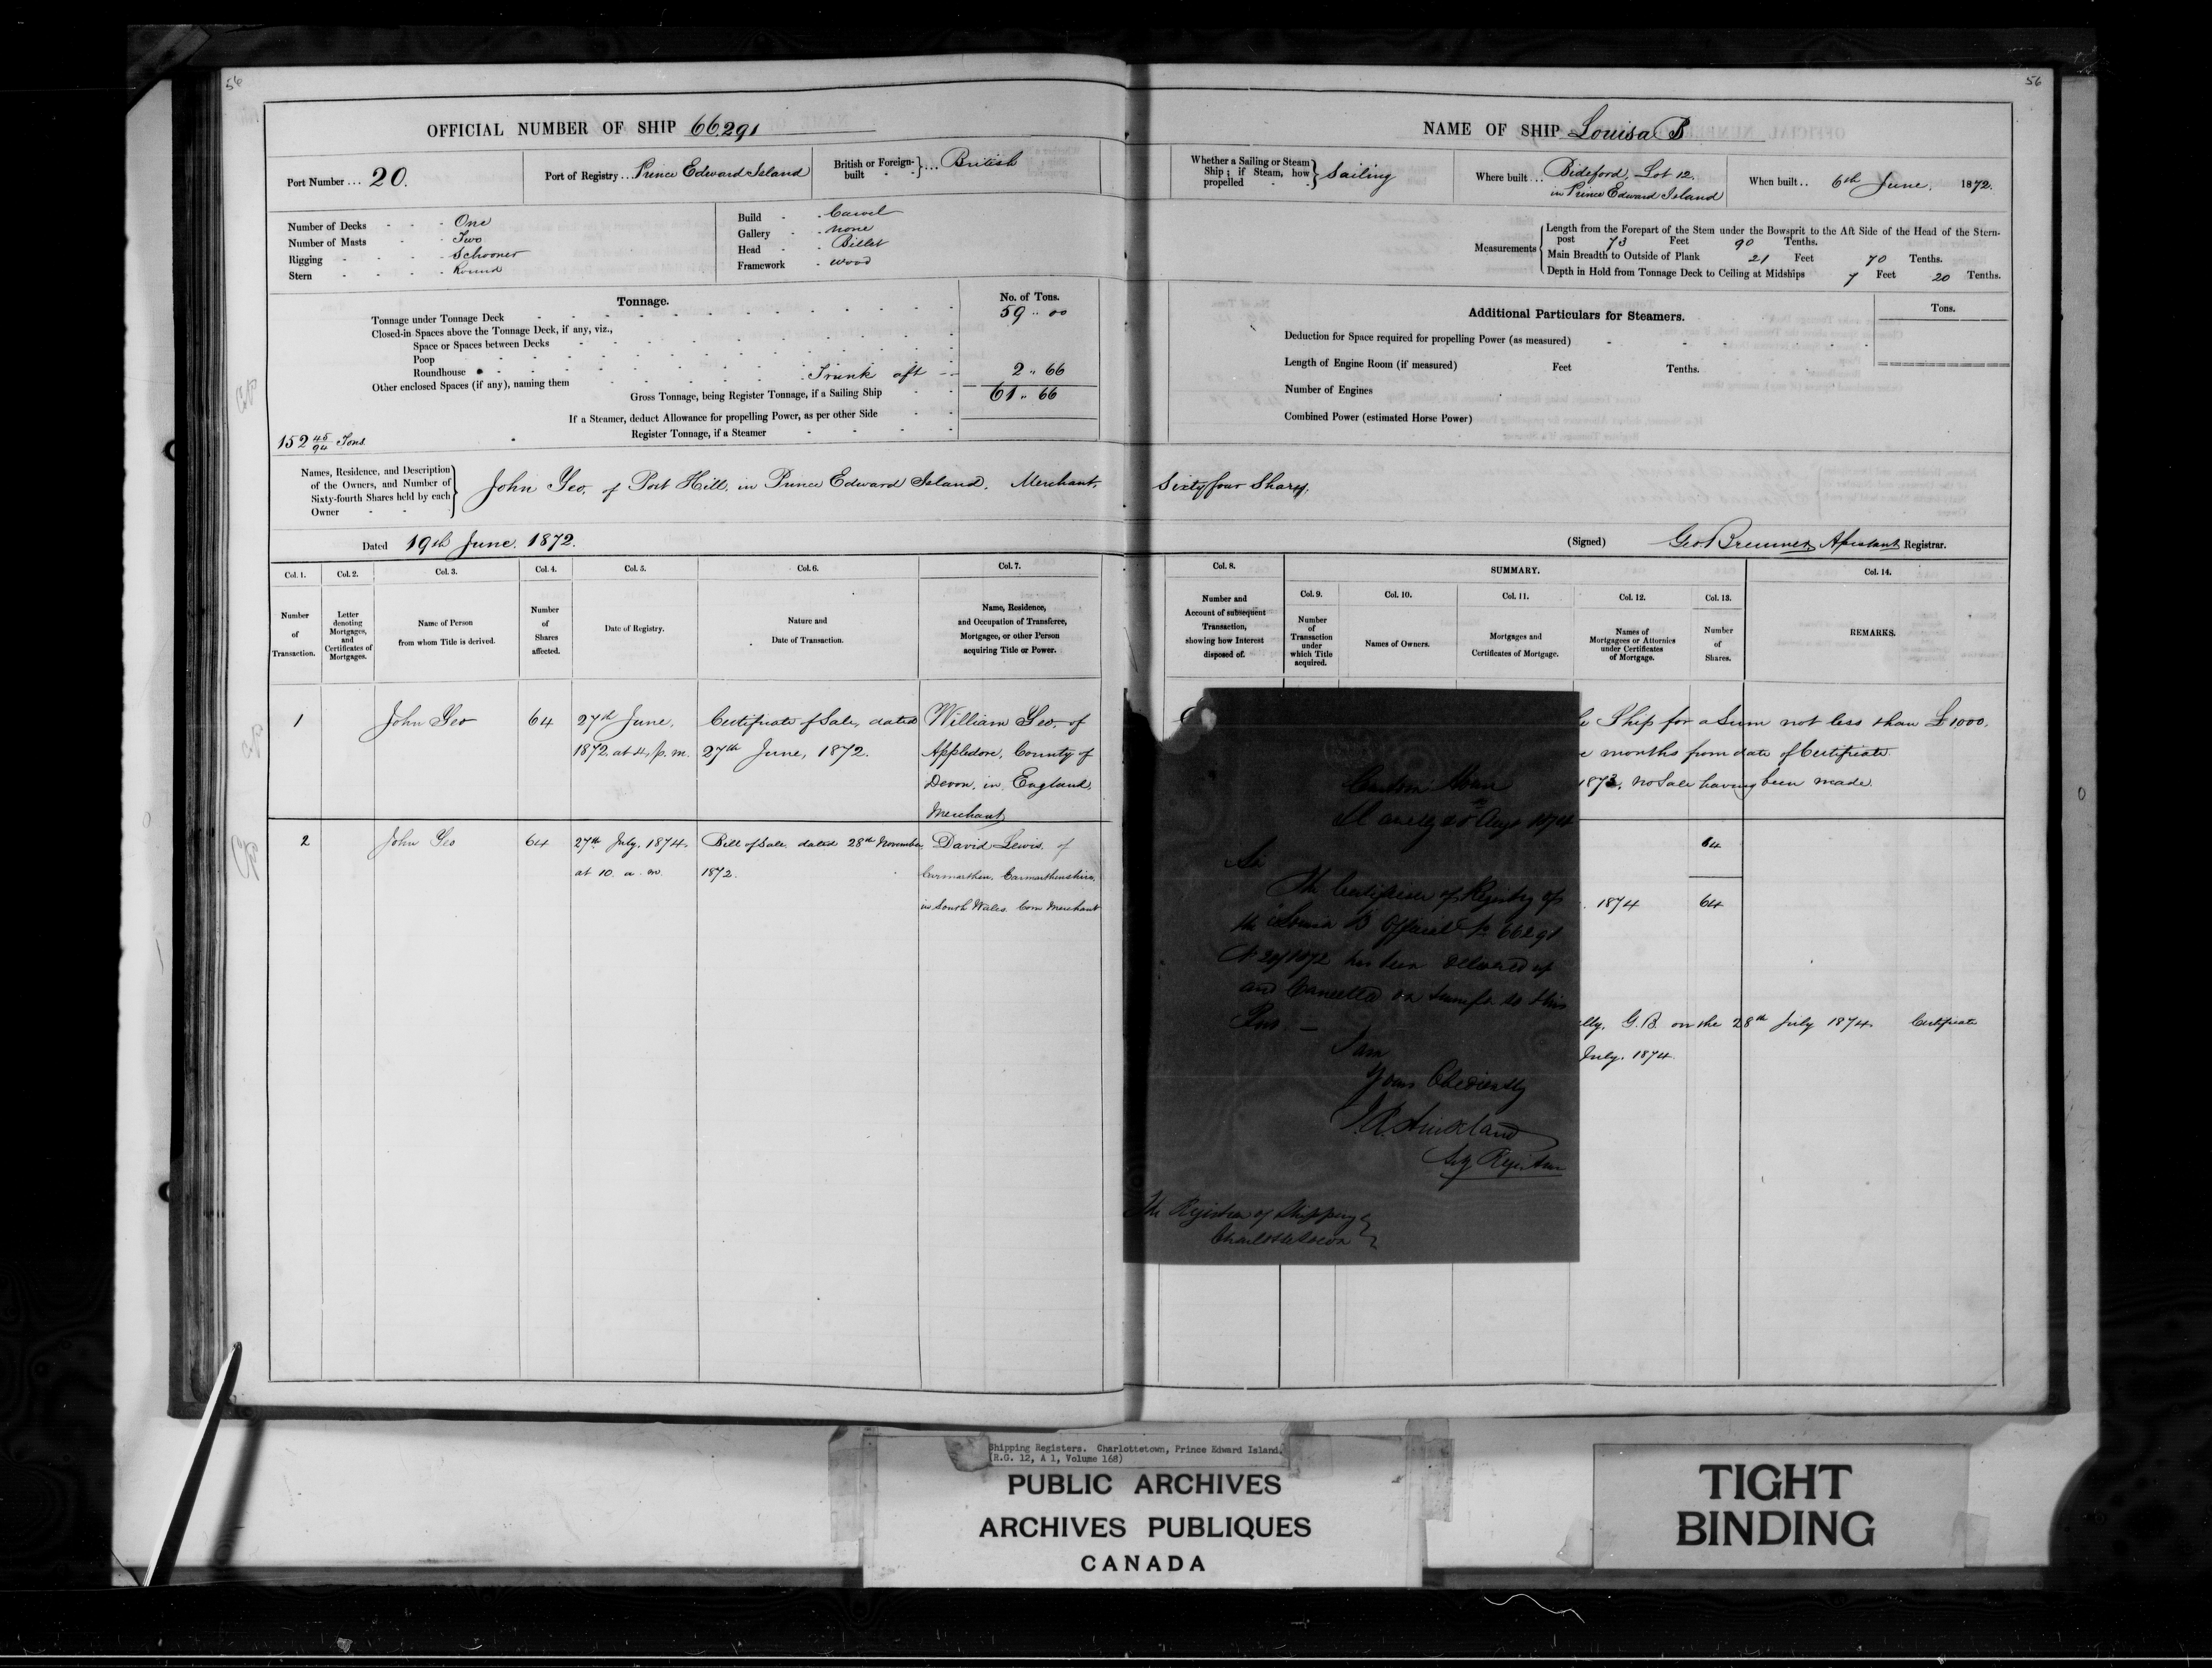 56
56
OFFICIAL NUMBER OF SHIP 66.291
NAME OF SHIP Louisa B
Port Number ... 20.
Port of Registry ... Prince Edward Island
British or Foreign-built ... British
Whether a Sailing or Steam Ship; if Steam, how propelled Sailing
Where built ... Bideford, Lot 12. in Prince Edward Island
When built .. 6th June, 1872.
Number of Decks One
Number of Masts Two
Rigging Schooner
Stern Round
Build Carvel
Gallery None
Head Billet
Framework Wood
Measurements
Length from the Forepart of the Stem under the Bowsprit to the Aft Side of the Head of the Stern-
post 73 Feet 90 Tenths.
Main Breadth to Outside of Plank 21 Feet 70 Tenths.
Depth in Hold from Tonnage Deck to Ceiling at Midships 7 Feet 20 Tenths.
Tonnage.
No. of Tons.
Tonnage under Tonnage Deck 59 .. 00
Closed-in Spaces above the Tonnage Deck, if any, viz.,
Space or Spaces between Decks
Poop
Roundhouse
Other enclosed Spaces (if any), naming them Trunk aft 2 .. 66
Gross Tonnage, being Register Tonnage, if a Sailing Ship 61 .. 66
If a Steamer, deduct Allowance for propelling Power, as per other Side
Register Tonnage, if a Steamer
152 45/94 Tons
Additional Particulars for Steamers.
Tons.
Deduction for Space required for propelling Power (as measured)
Length of Engine Room (if measured) Feet Tenths.
Number of Engines
Combined Power (estimated Horse Power)
Names, Residence, and Description
of the Owners, and Number of
Sixty-fourth Shares held by each
Owner
John Yeo, of Port Hill, in Prince Edward Island, Merchant, Sixty four Shares,
Dated 19th June, 1872.
(Signed) Geo Bremner Assistant Registrar.
Col. 1. Col. 2. Col. 3. Col. 4. Col. 5. Col. 6. Col. 7. Col. 8. SUMMARY. Col. 14.
Col. 9. Col. 10. Col. 11. Col. 12. Col. 13.
Number of Transaction.
Letter denoting Mortgages, and Certificates of Mortgages.
Name of Person from whom Title is derived.
Number of Shares affected.
Date of Registry.
Nature and Date of Transaction.
Name, Residence, and Occupation of Transferee, Mortgagee, or other Person acquiring Title or Power.
Number and Account of subsequent Transaction, showing how Interest disposed of.
Number of Transaction under which Title acquired.
Names of Owners.
Mortgages and Certificates of Mortgage.
Names of Mortgagees or Attornies under Certificates of Mortgage.
Number of Shares.
REMARKS.
1 John Yeo 64 27th June, 1872, at 4, p.m. Certificate of Sale, dated 27th June, 1872. William Yeo, of Appledore, County of Devon, in England, Merchant
Ship for a Sum not less than £1000,
months from date of Certificate
1873, no Sale having been made
2 John Yeo 64 27th July, 1874, at 10. a.m. Bill of Sale dated 28th November, 1872. David Lewis, of Carmarthen, Carmarthenshire, in South Wales, Corn Merchant
64
1874 64
lly, G.B. on the 28th July 1874. Certificate
July, 1874
Custom House
Llanelly Augt 1874
Sir
The Certificate of Registry of
the "Louisa B" Official No 66291
No 20/1872 has been delivered up
and Cancelled on transfer to this
Port. —
I am
Yours Obediently
The Registrar of Shipping
Charlottetown
Shipping Registers. Charlottetown, Prince Edward Island.
(R.G. 12, A 1, Volume 168)
PUBLIC ARCHIVES
ARCHIVES PUBLIQUES
CANADA
TIGHT
BINDING